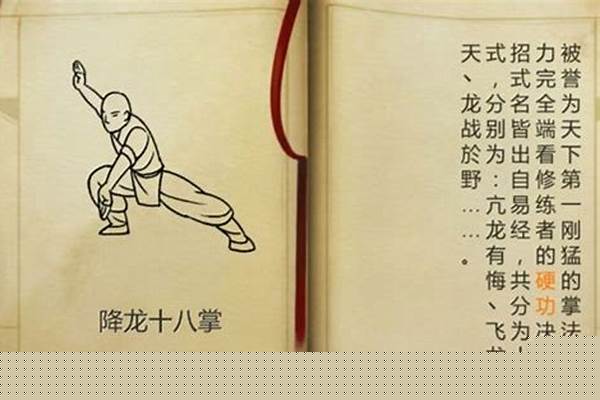 降龙十八掌
被誉为天下第一刚猛的掌法
力完全端看修练者的硬功决
招式名皆出自易经，共分为
式，分别为：亢龙有悔、飞龙
天、龙战於野……。